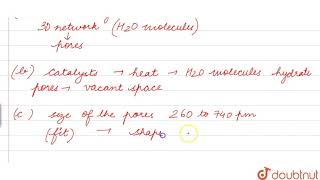 3D network (H2O molecules)
↓
pores
(b) catalysts → heat → H2O molecules hydrate
pores → vacant space
(c) size of the pores 260 to 740 pm
(fit) → shape
doubtnut